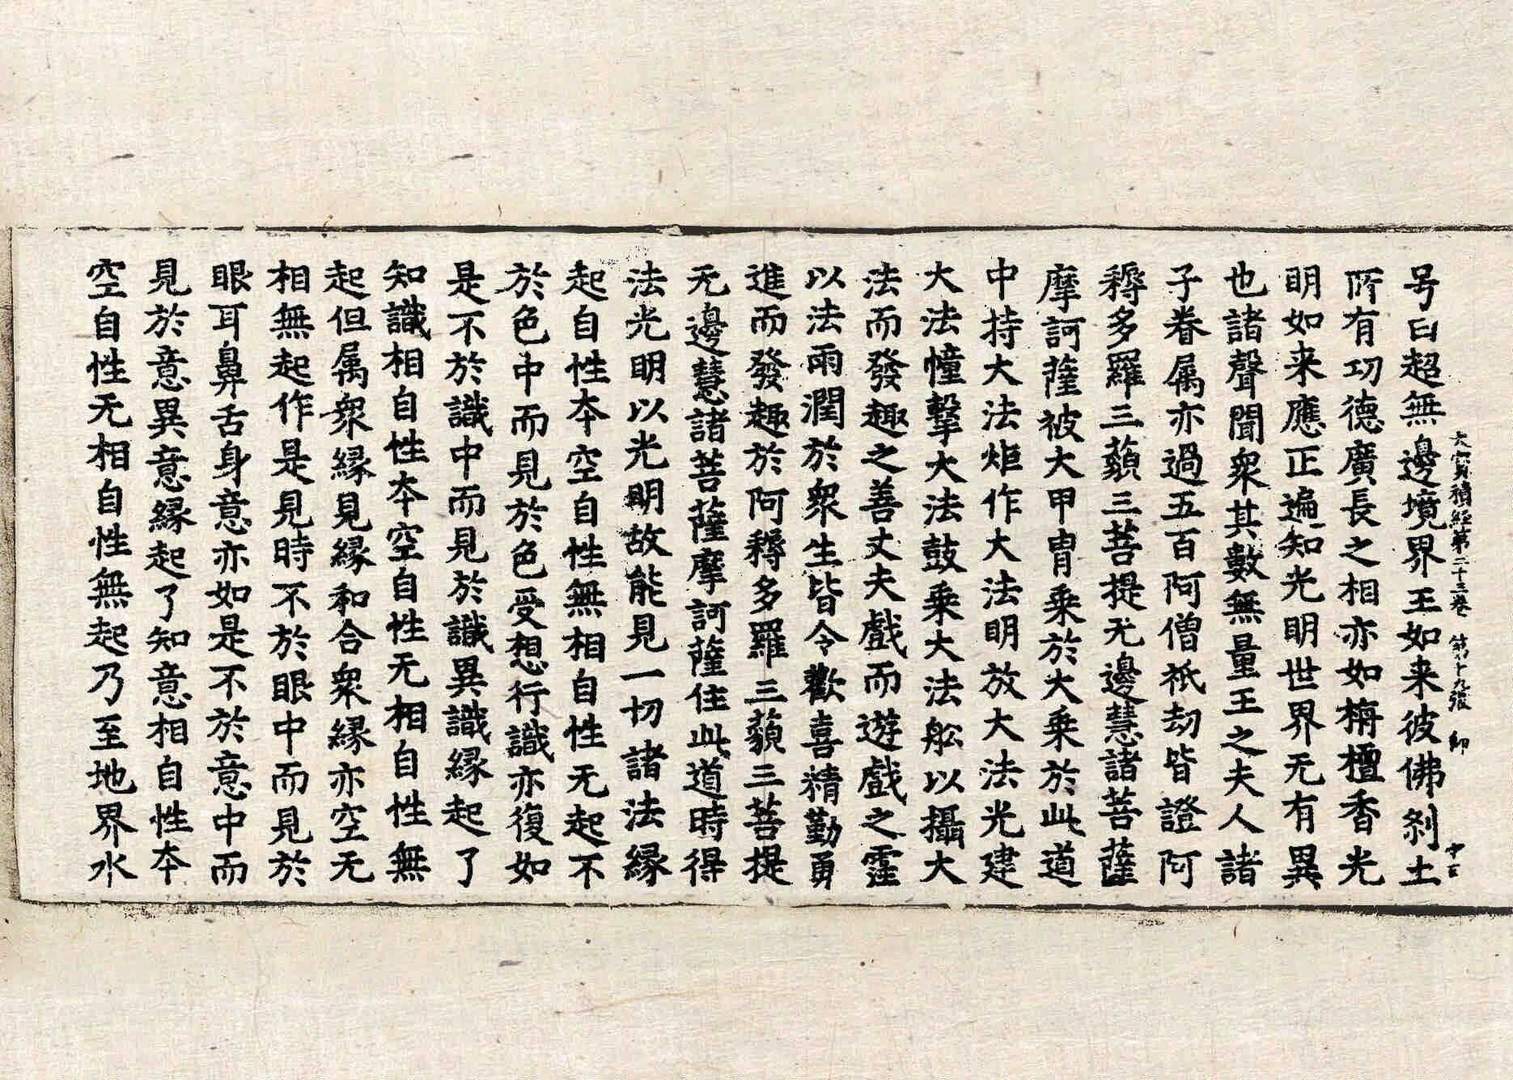 号曰超無邊境界王如来彼佛刹土
大寶積經第二十三卷 第十九張 印
所有功德廣長之相亦如栴檀香光
明如来應正遍知光明世界无有異
也諸聲聞衆其數無量王之夫人諸
子眷属亦過五百阿僧祇劫皆證阿
耨多羅三藐三菩提无邊慧諸菩薩
摩訶薩被大甲冑乘於大乘於此道
中持大法炬作大法明放大法光建
大法幢擊大法鼓乘大法舩以攝大
法而發趣之善丈夫戲而遊戲之霔
以法雨潤於衆生皆令歡喜精勤勇
進而發趣於阿耨多羅三藐三菩提
无邊慧諸菩薩摩訶薩住此道時得
法光明以光明故能見一切諸法縁
起自性本空自性無相自性无起不
於色中而見於色受想行識亦復如
是不於識中而見於識異識縁起了
知識相自性本空自性无相自性無
起但属衆縁見縁和合衆縁亦空无
相無起作是見時不於眼中而見於
眼耳鼻舌身意亦如是不於意中而
見於意異意縁起了知意相自性本
空自性无相自性無起乃至地界水